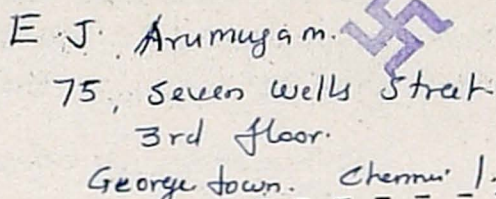 E. J. Arumugam.
75, Seven Wells Street
3rd floor.
George town. Chennai 1.